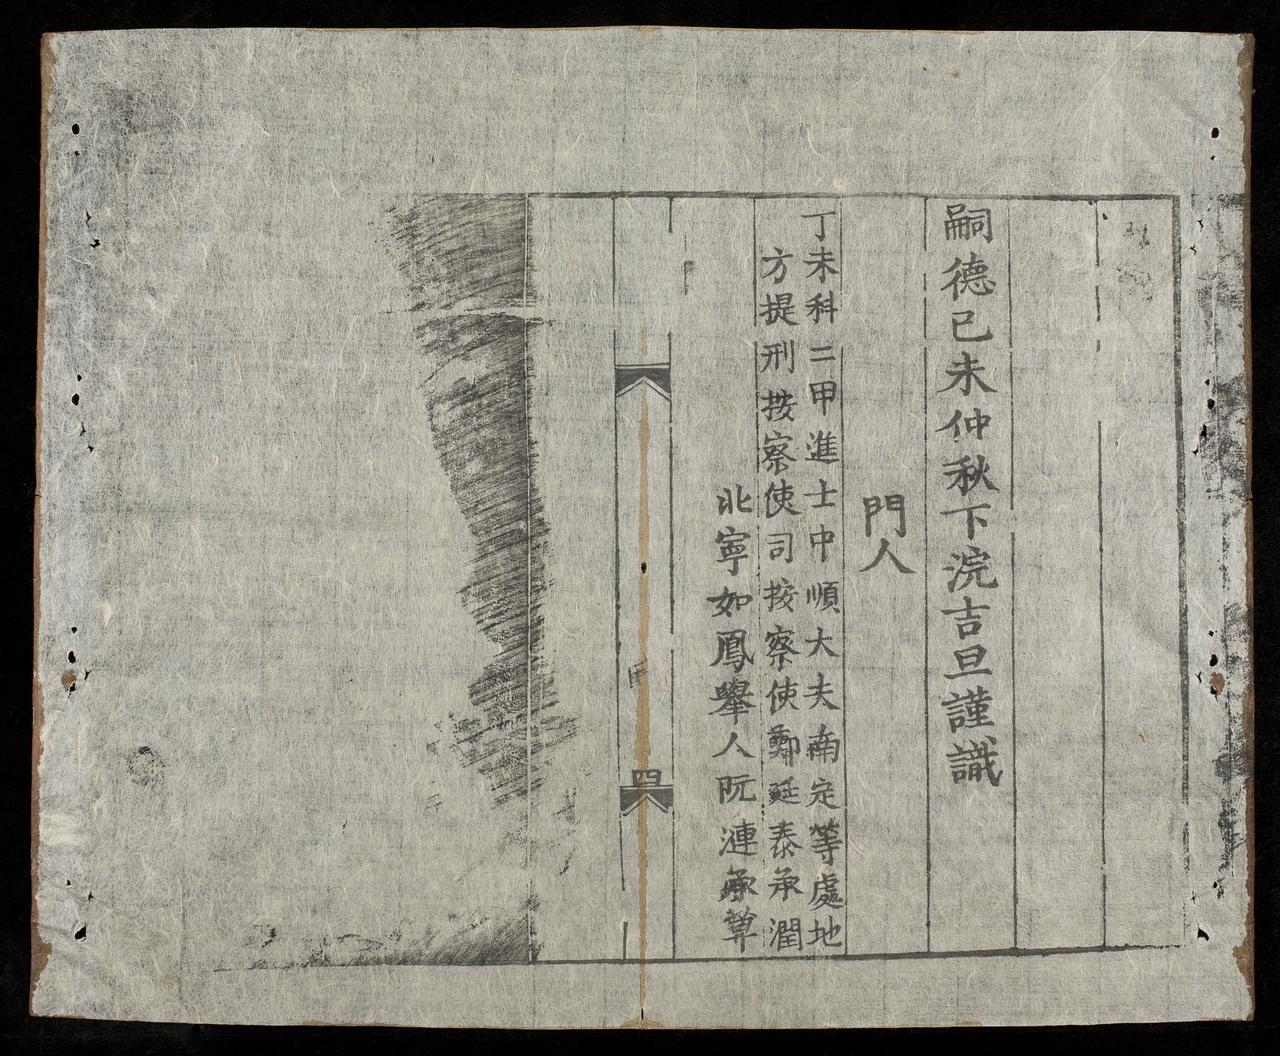 嗣德已未仲秋下浣吉旦謹識
門人
丁未科二甲進士中順大夫南定等處地
方提刑按察使司按察使鄭廷泰承潤
北寧如鳳舉人阮漣承草
四